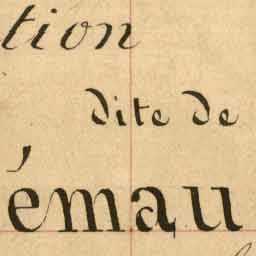 tion
dite de
émau